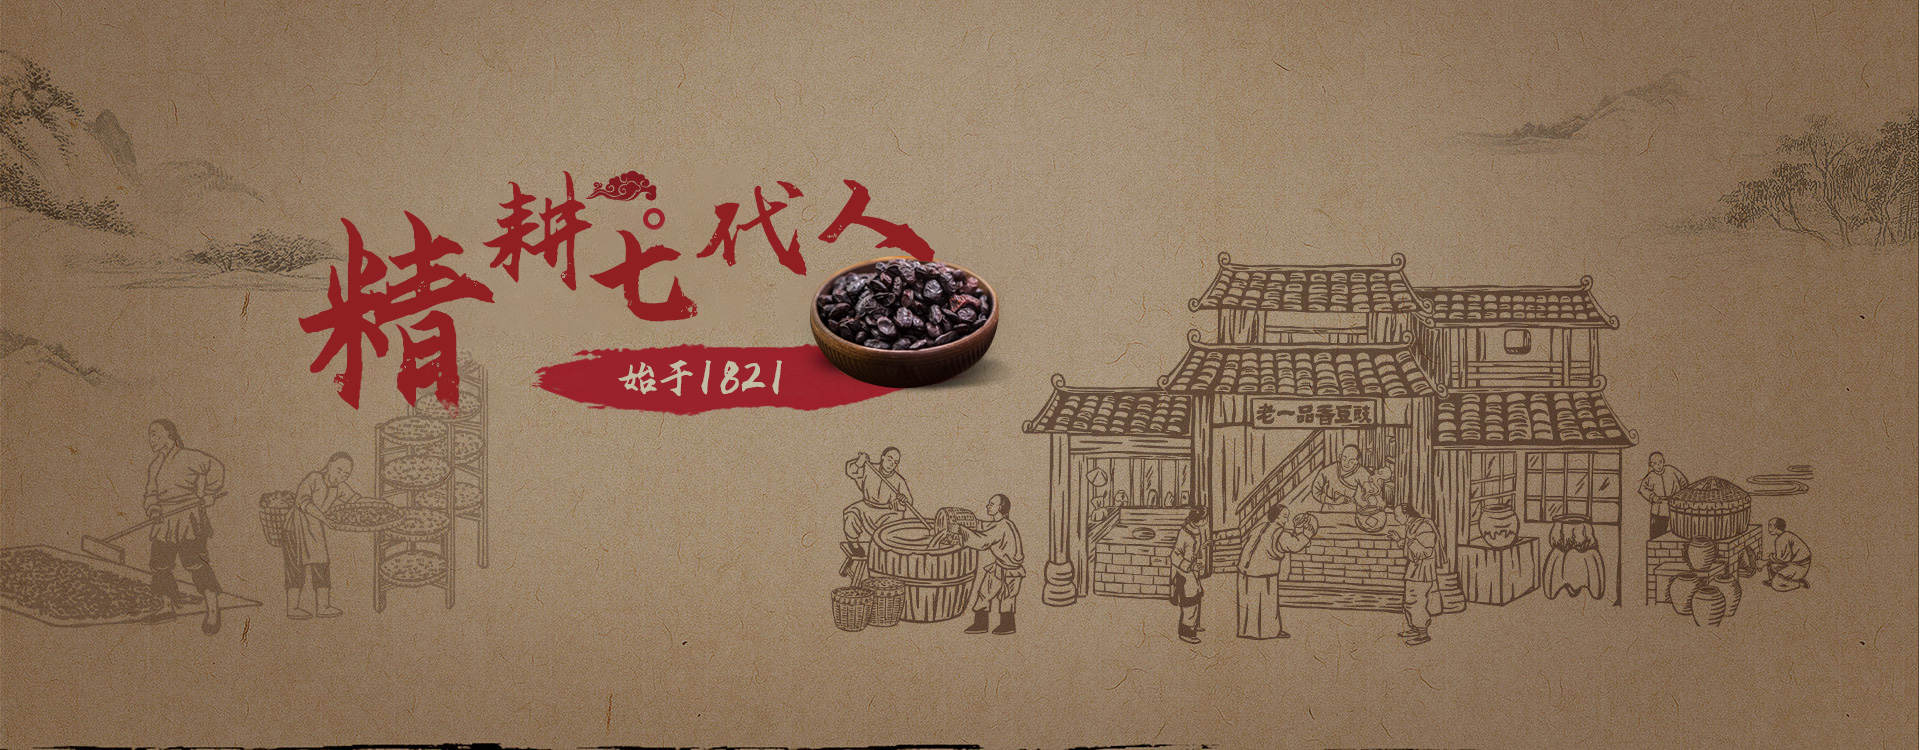 精耕七代人
始于1821
老一品香豆豉